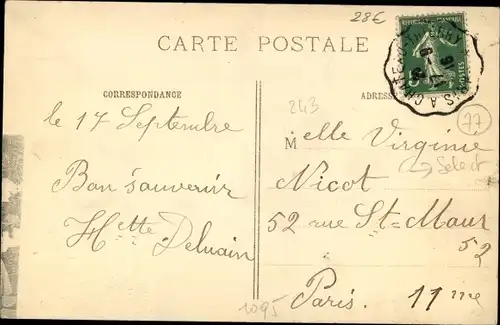 28€
CARTE POSTALE
CORRESPONDANCE
ADRESSE
243
77
le 17 Septembre
Melle Virginie
Select
Bon souvenir
Nicot
Hette Delvain
52 rue St-Maur
52
Paris. 11me
1095